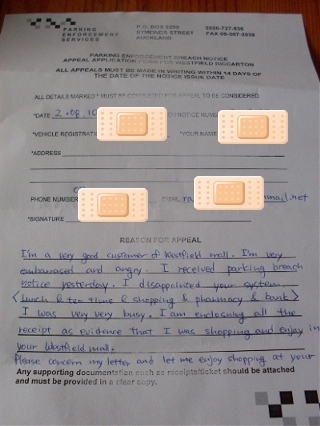 PARKING
ENFORCEMENT
SERVICES
P.O. BOX
SYMONDS STREET
AUCKLAND
PARKING ENFORCEMENT BREACH NOTICE
APPEAL APPLICATION FORM FOR WESTFIELD RICCARTON
ALL APPEALS MUST BE MADE IN WRITING WITHIN 14 DAYS OF
THE DATE OF THE NOTICE ISSUE DATE
ALL DETAILS MARKED * MUST BE COMPLETED FOR APPEAL TO BE CONSIDERED
*DATE
*VEHICLE REGISTRA *YOUR NAME
*ADDRESS
PHONE NUMBER
*SIGNATURE
REASON FOR APPEAL
I'm a very good customer of Westfield mall. I'm very
embarassed and angry. I received parking breach
notice yesterday. I disappointed your system.
(lunch & tea time & shopping & pharmacy & bank)
I was very very busy. I am enclosing all the
receipt as evidence that I was shopping and enjoy in
your Westfield mall.
Please concern my letter and let me enjoy shopping at your
Any supporting documentation such as receipts/ticket should be attached
and must be provided in a clear copy.